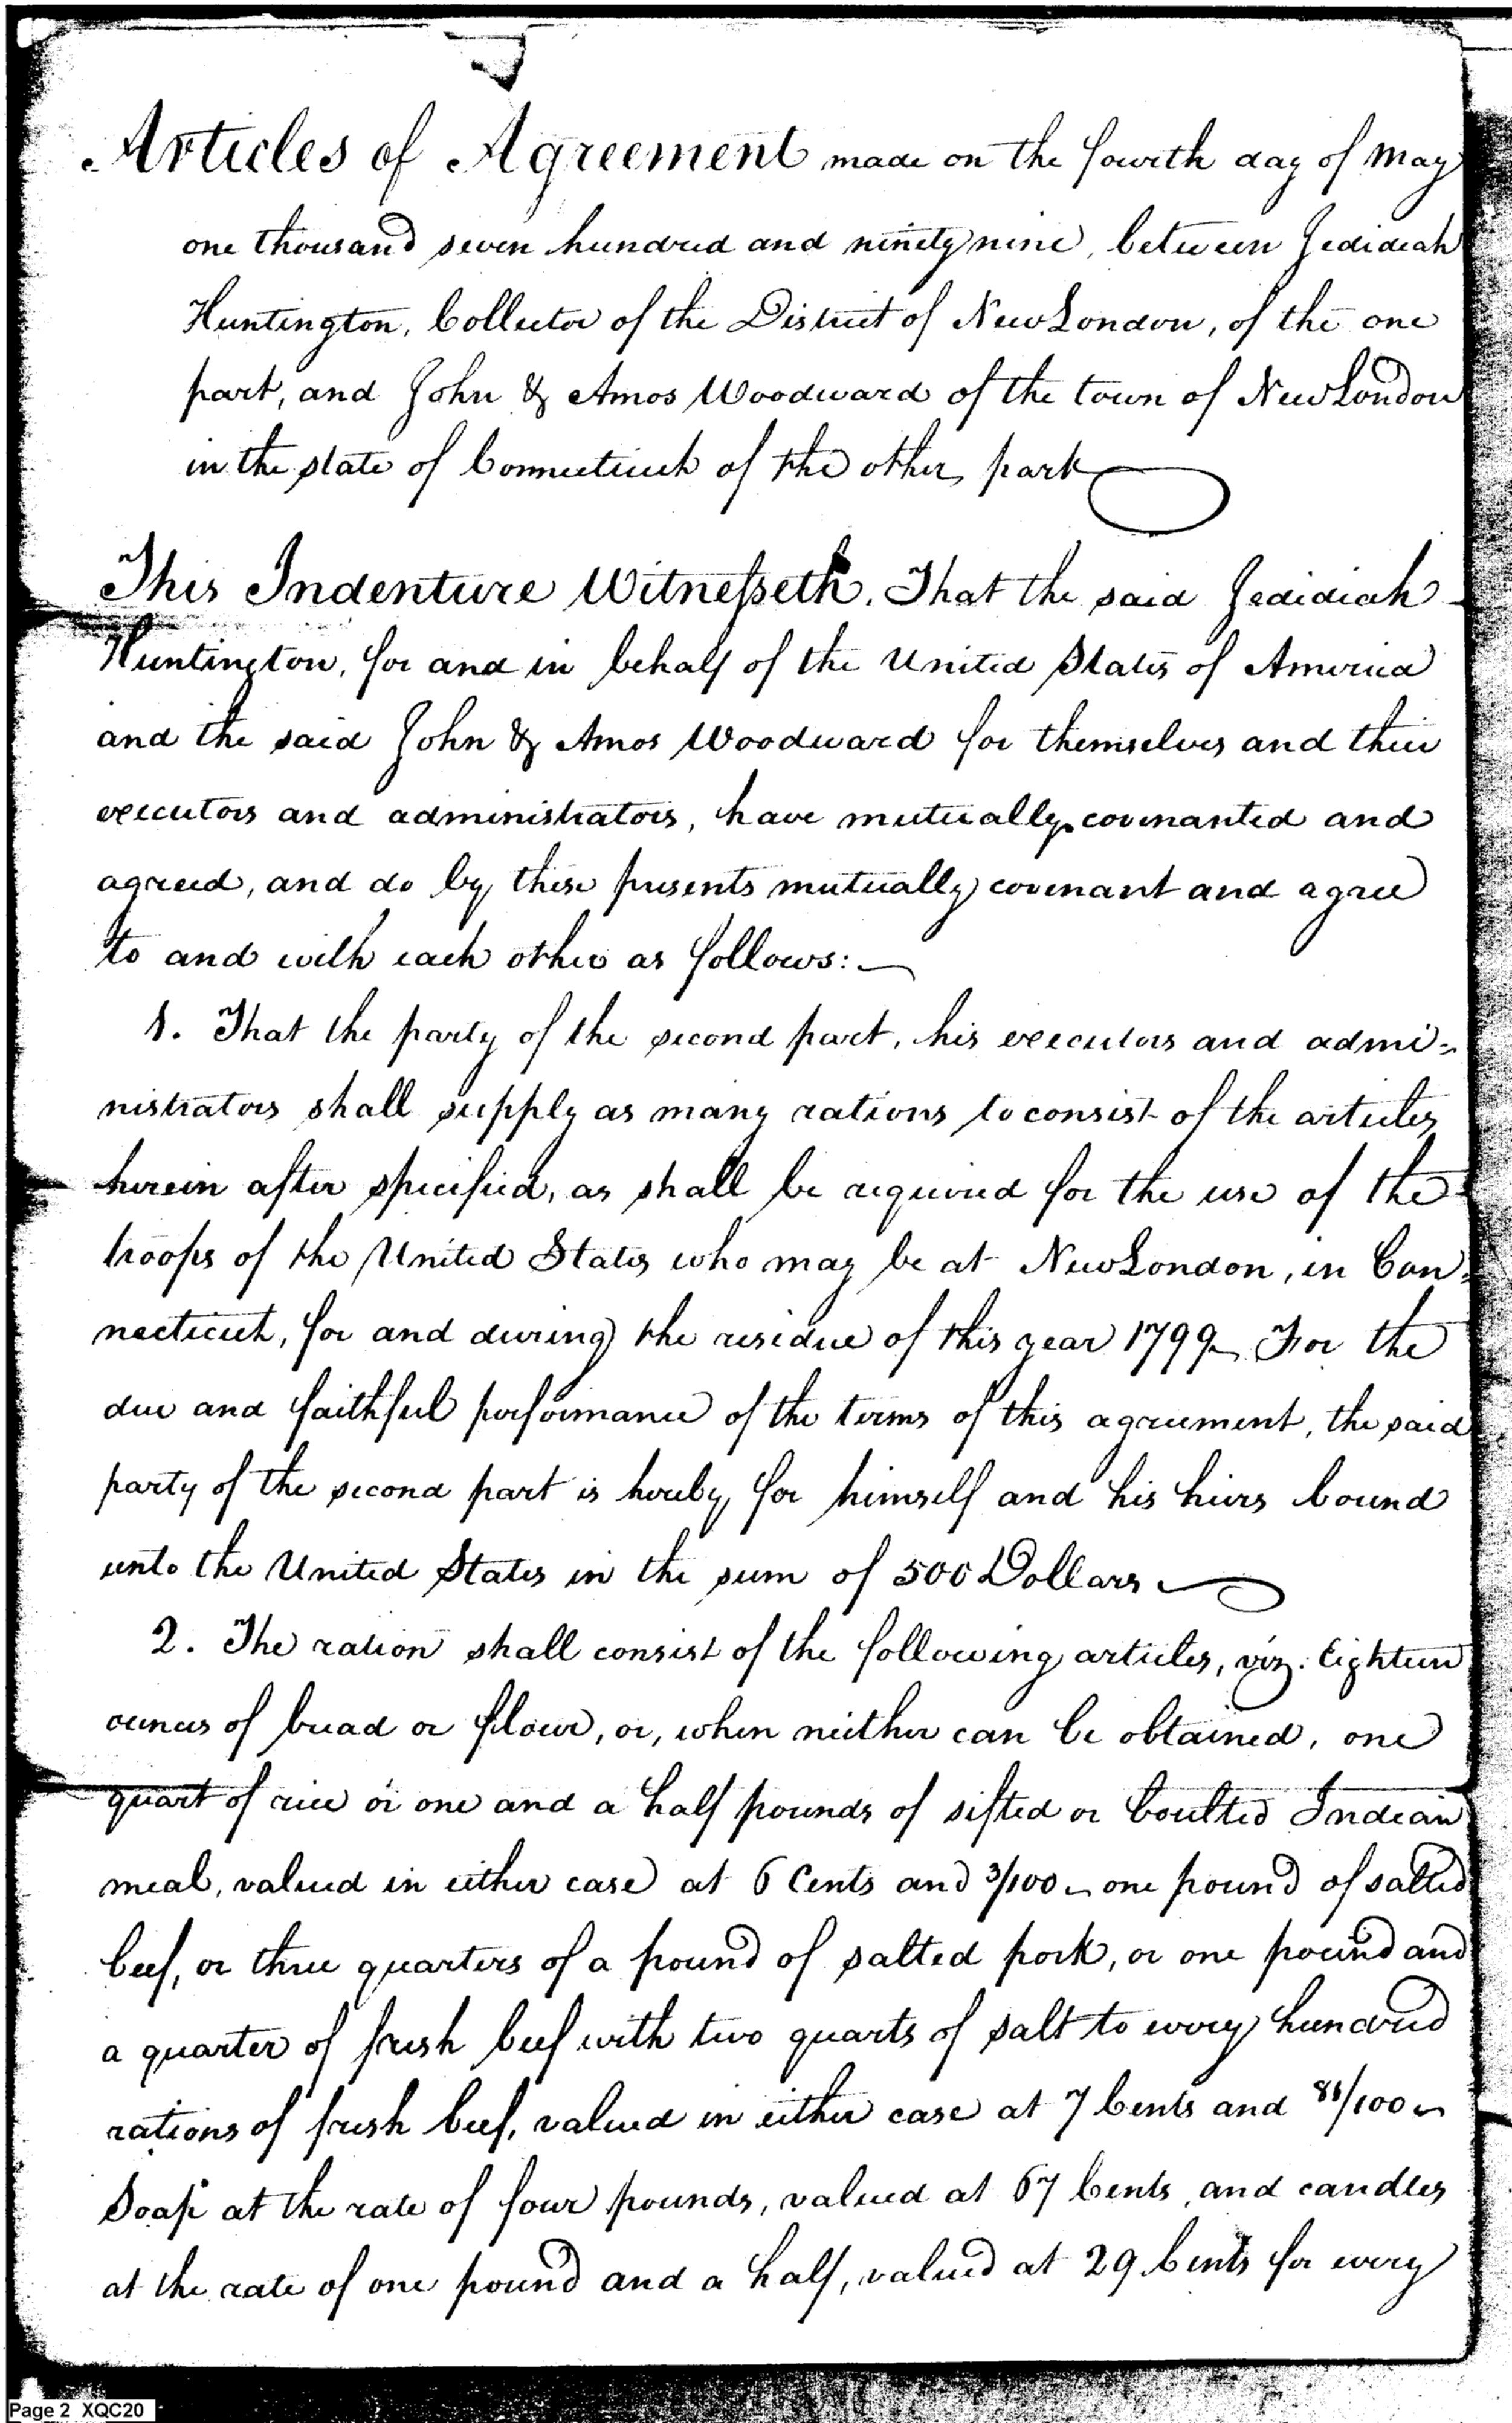 Articles of Agreement made on the fourth day of May
one thousand seven hundred and ninety nine, between Jedidiah
Huntington, Collector of the District of New London, of the one
part, and John & Amos Woodward of the town of New London
in the state of Connecticut of the other part
This Indenture Witnesseth. That the said Jedidiah
Huntington, for and in behalf of the United States of America
and the said John & Amos Woodward for themselves and their
executors and administrators, have mutually covenanted and
agreed, and do by these presents mutually covenant and agree
to and with each other as follows:—
1. That the party of the second part, his executors and admi=
nistrators shall supply as many rations to consist of the articles
herein after specified, as shall be required for the use of the
troops of the United States who may be at New London, in Con=
necticut, for and during the residue of this year 1799— For the
due and faithful performance of the terms of this agreement, the said
party of the second part is hereby for himself and his heirs bound
unto the United States in the sum of 500 Dollars
2. The ration shall consist of the following articles, viz: Eighteen
ounces of bread or flour, or, when neither can be obtained, one
quart of rice or one and a half pounds of sifted or boulted Indian
meal, valued in either case at 6 Cents and 3/100— one pound of salted
beef, or three quarters of a pound of salted pork, or one pound and
a quarter of fresh beef with two quarts of salt to every hundred
rations of fresh beef, valued in either case at 7 Cents and /100—
Soap at the rate of four pounds, valued at 67 Cents, and candles
at the rate of one pound and a half, valued at 29 Cents for every
Page 2 XQC20